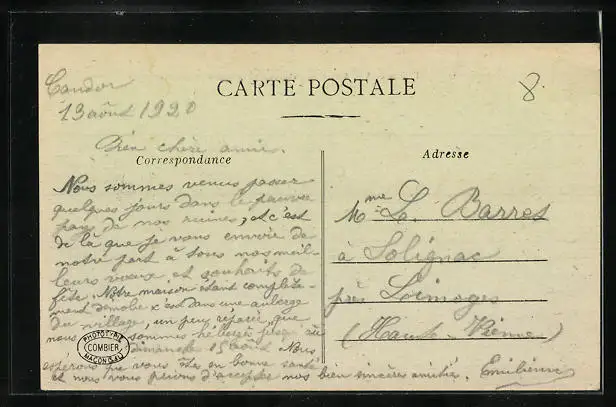 Candor
13 août 1920
8
CARTE POSTALE
Bien chère amie.
Correspondance
Nous sommes venus passer
quelques jours dans le pauvre
pays de nos ruines, et c'est
de là que je vous envoie de
notre part à tous nos meil-
leurs voeux et souhaits de
fête. Notre maison étant complète-
ment démolie c'est dans une auberge
du village, un peu réparée, que
nous sommes hébergés jusqu'au
dimanche 15 août. Nous
espérons que vous êtes en bonne santé
et nous vous prions d'accepter nos bien sincères amitiés. Emilienne
Adresse
Mme Le Barres
à Solignac
près Limoges
(Haute Vienne)
PHOTOTYPIE
COMBIER
MACON